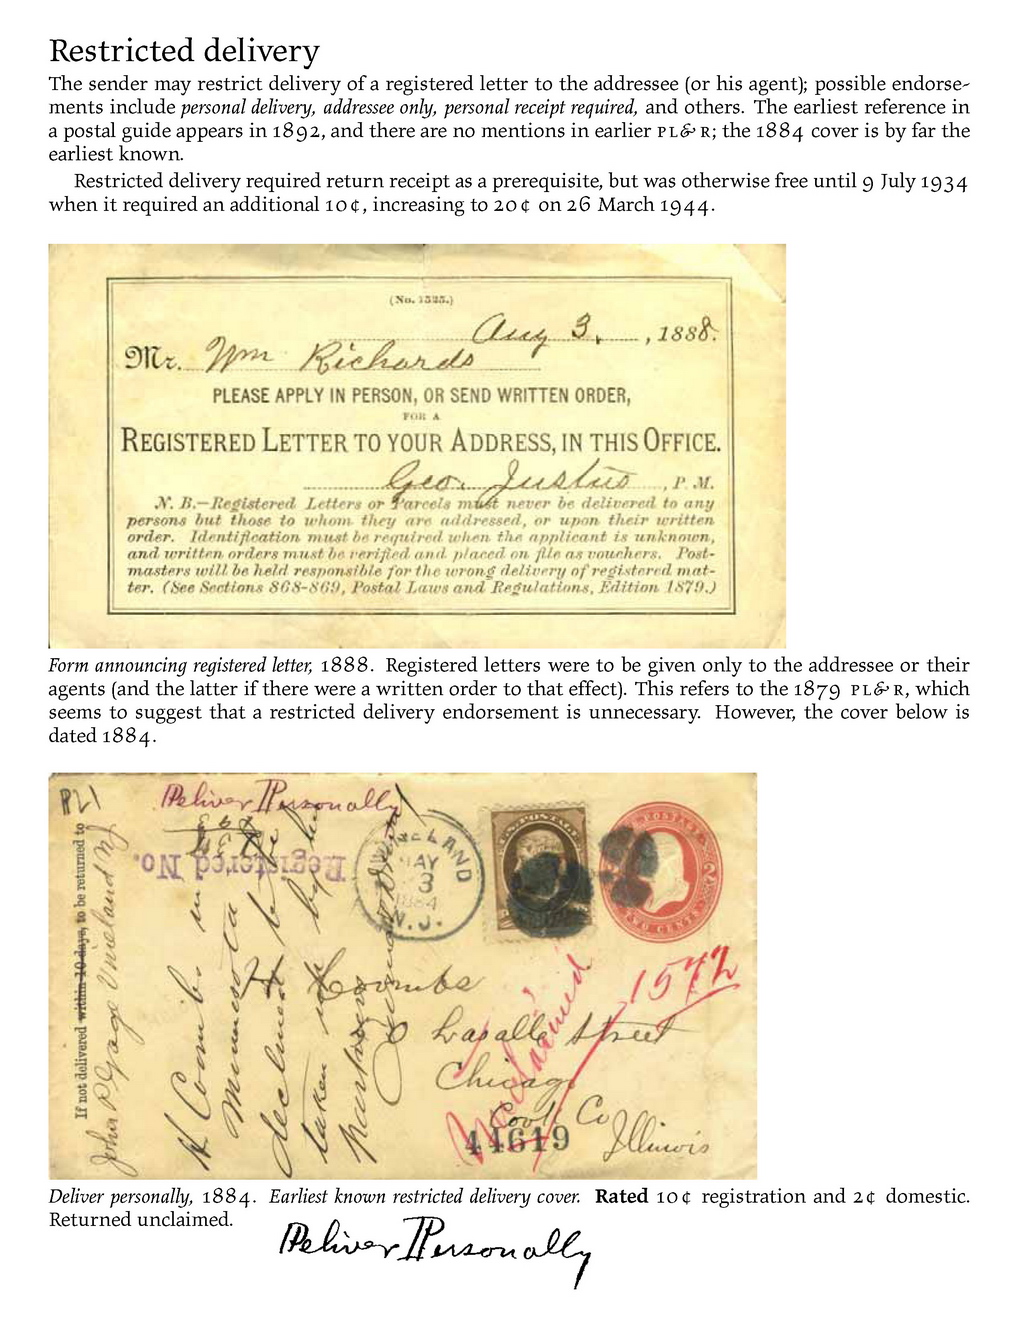 Restricted delivery
The sender may restrict delivery of a registered letter to the addressee (or his agent); possible endorse-
ments include personal delivery, addressee only, personal receipt required, and others. The earliest reference in
a postal guide appears in 1892, and there are no mentions in earlier PL& R; the 1884 cover is by far the
earliest known.
Restricted delivery required return receipt as a prerequisite, but was otherwise free until 9 July 1934
when it required an additional 10¢, increasing to 20¢ on 26 March 1944.
(No. 1525.)
Aug 3, , 1888.
Mr. Wm Richards
PLEASE APPLY IN PERSON, OR SEND WRITTEN ORDER,
FOR A
REGISTERED LETTER TO YOUR ADDRESS, IN THIS OFFICE.
Geo. Justus, P. M.
N. B.—Registered Letters or Parcels must never be delivered to any
persons but those to whom they are addressed, or upon their written
order. Identification must be required when the applicant is unknown,
and written orders must be verified and placed on file as vouchers. Post-
masters will be held responsible for the wrong delivery of registered mat-
ter. (See Sections 868-869, Postal Laws and Regulations, Edition 1879.)
Form announcing registered letter, 1888. Registered letters were to be given only to the addressee or their
agents (and the latter if there were a written order to that effect). This refers to the 1879 PL& R, which
seems to suggest that a restricted delivery endorsement is unnecessary. However, the cover below is
dated 1884.
Deliver Personally
Registered No.
VINELAND
MAY
3
1884
N.J.
U.S. POSTAGE
TWO CENTS
2
If not delivered within 10 days, to be returned to
John P Gage Vineland NJ
H Coombs in
Minnesota
declined to be
taken up by his
H Coombs
Lasalle Street
Chicago
Cook Co
Illinois
Unclaimed
1572
44619
Deliver personally, 1884. Earliest known restricted delivery cover. Rated 10¢ registration and 2¢ domestic.
Returned unclaimed.
Deliver Personally